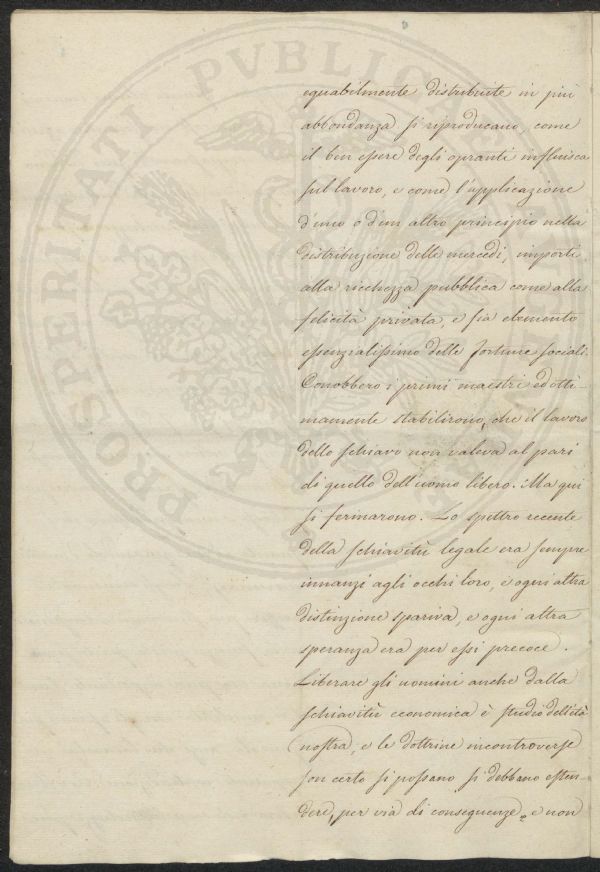 equabilmente distribuite in più
abbondanza si riproducano, come
il ben essere degli opranti influisca
sul lavoro, e come l'applicazione
d'uno o d'un altro principio nella
distribuzione delle mercedi, importi
alla ricchezza pubblica come alla
felicità privata, e sia elemento
essenzialissimo delle fortune sociali.
Conobbero i primi maestri ed otti-
mamente stabilirono, che il lavoro
dello schiavo non valeva al pari
di quello dell'uomo libero. Ma qui
si fermarono. Lo spettro recente
della schiavitù legale era sempre
innanzi agli occhi loro, e ogni altra
distinzione spariva, e ogni altra
speranza era per essi precoce.
Liberare gli uomini anche dalla
schiavitù economica è studio dell'età
nostra, e le dottrine incontroverse
son certo si possano si debbano esten-
dere, per via di conseguenze, e non
PROSPERITATI PVBLIC